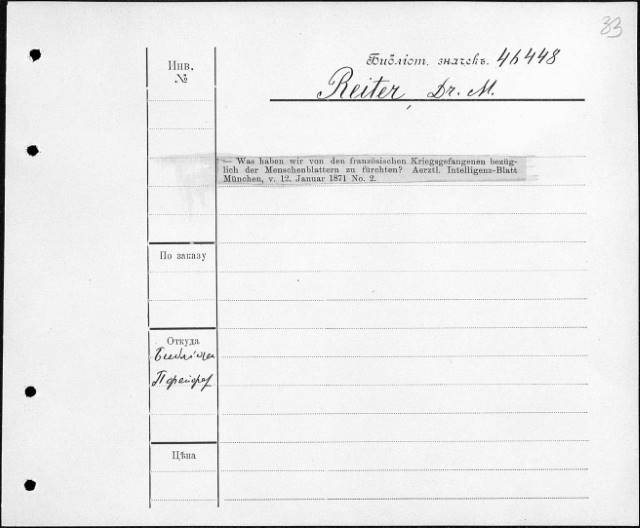 33
Инв.
№
Библіот. значекъ. 46448
Reiter, Dr. M.
— Was haben wir von den französischen Kriegsgefangenen bezüg-
lich der Menschenblattern zu fürchten? Aerztl. Intelligenz-Blatt
München, v. 12. Januar 1871 No. 2.
По заказу
Откуда
Цѣна